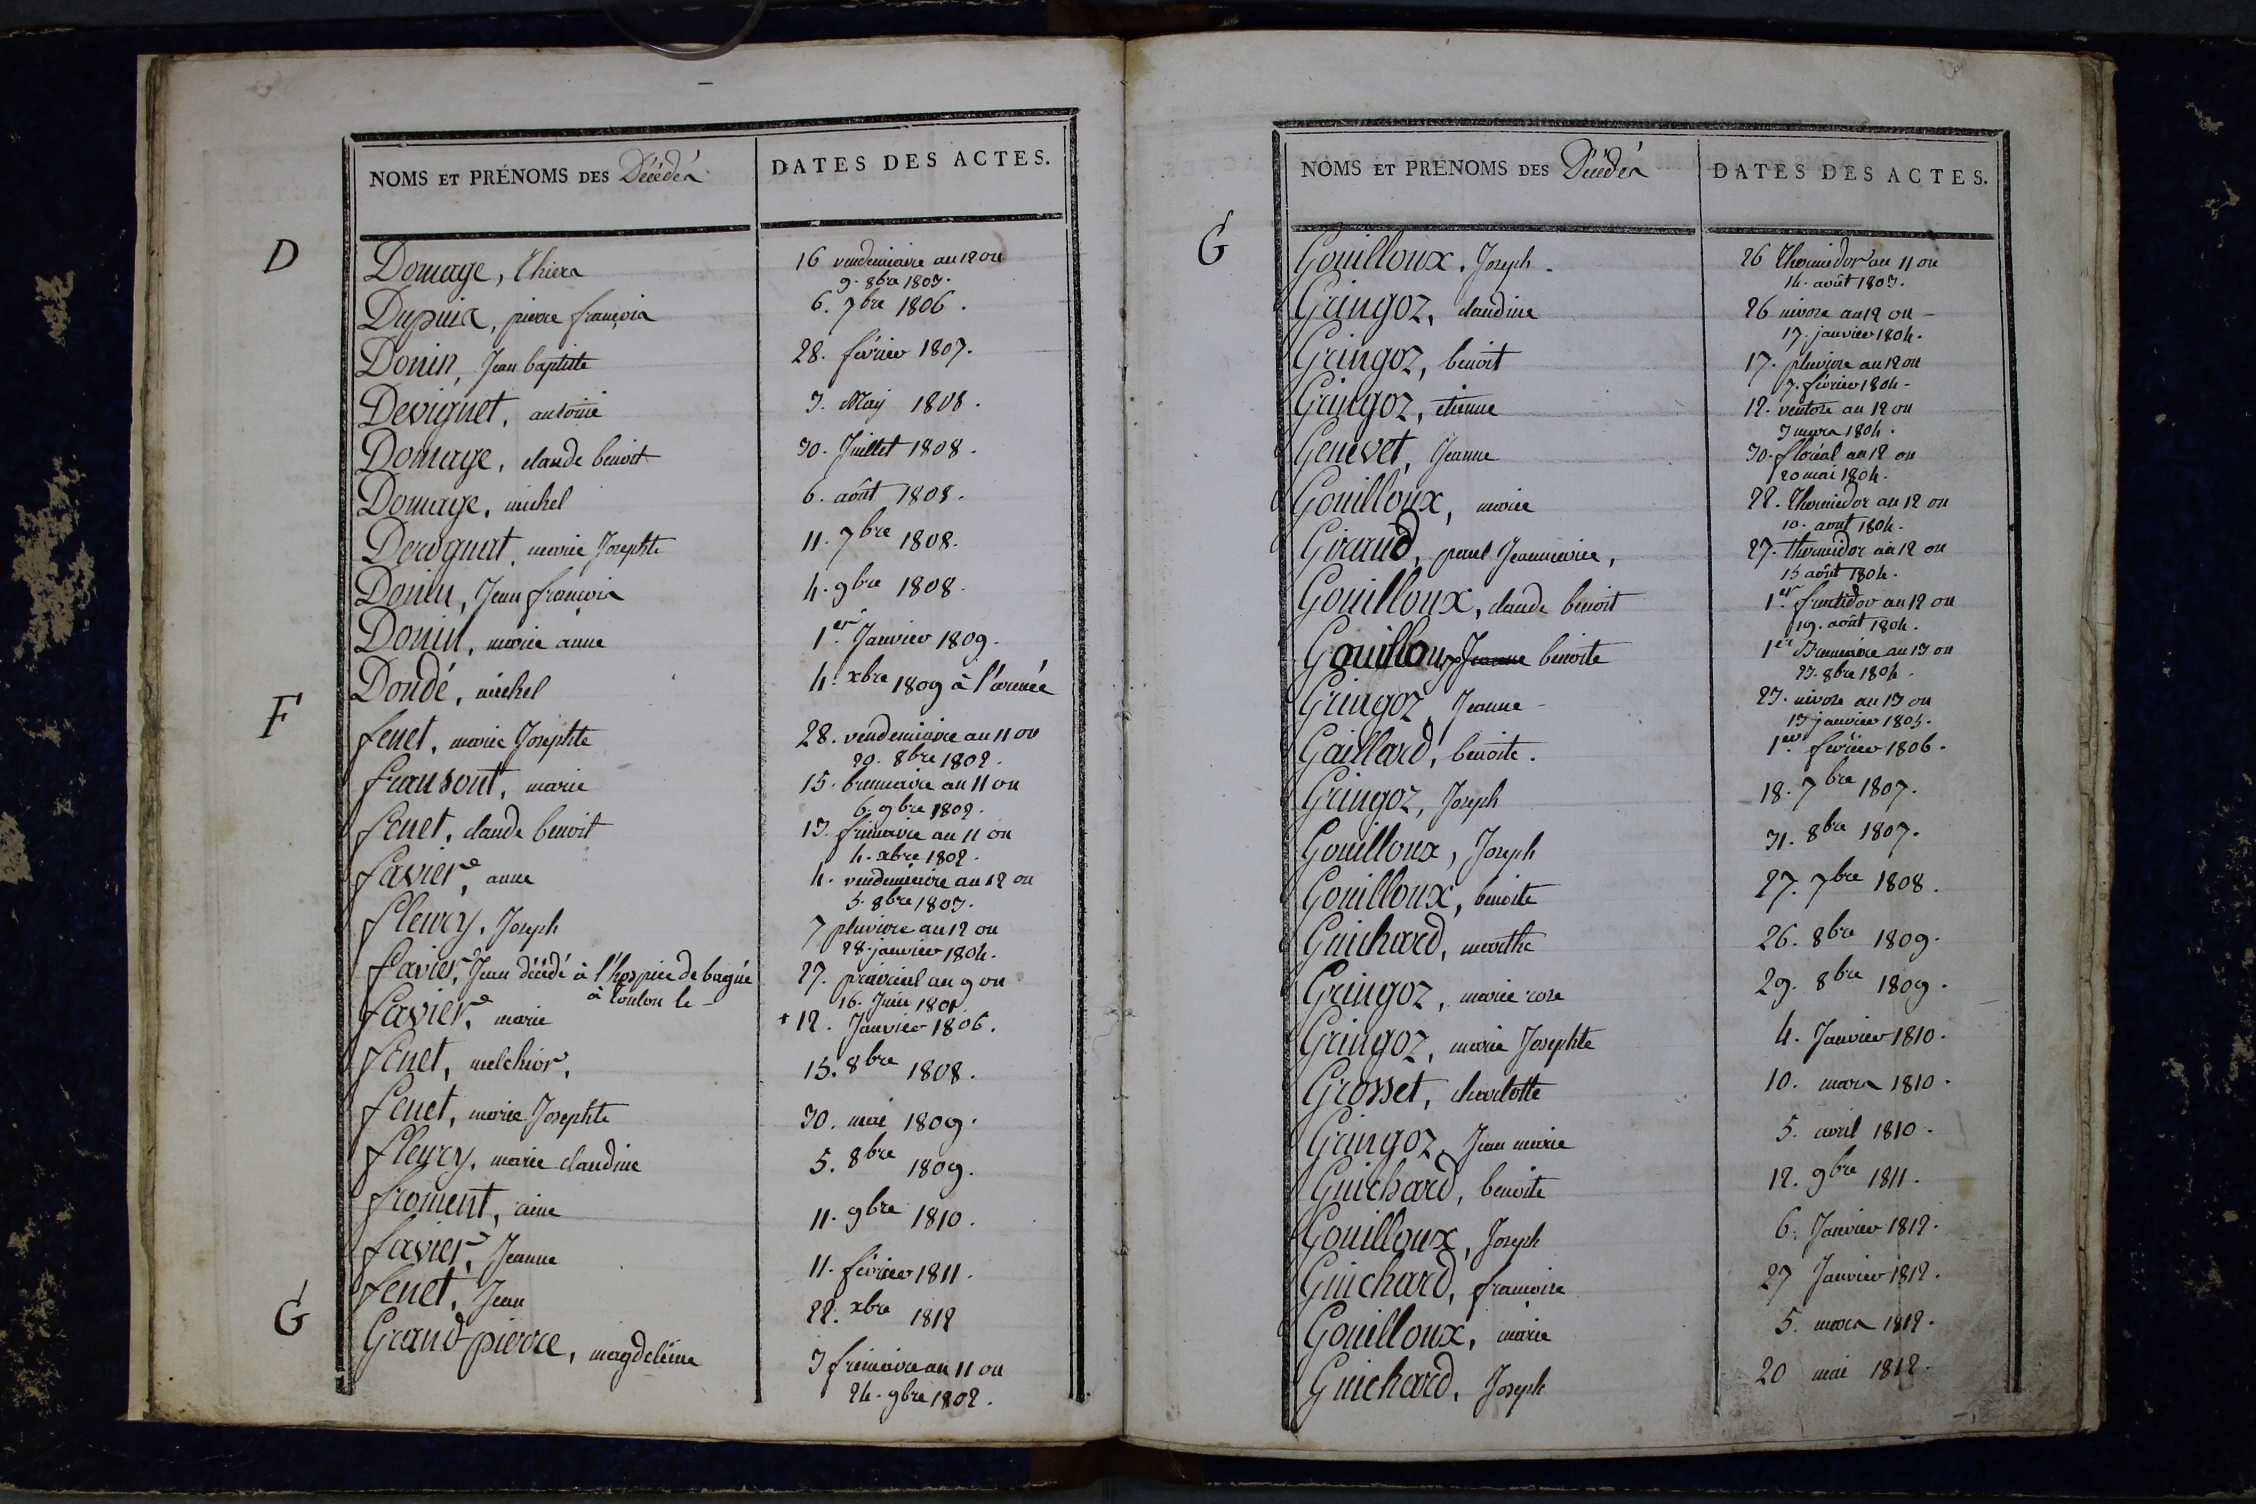 NOMS ET PRÉNOMS DES Décédés
DATES DES ACTES.
D
Domage, thiers
16 vendemiaire an 12 ou
9. 8bre 1803.
Dupuis, pierre françois
6. 7bre 1806.
Donin, Jean baptiste
28. février 1807.
Devignet, antoine
3. May 1808.
Domage, claude benoit
30. Juillet 1808.
Domage, michel
6. août 1808.
Derognat, marie Josephte
11. 7bre 1808.
Donin, Jean françois
4. 9bre 1808.
Donin, marie anne
1er. Janvier 1809.
Dondé, michel
4. xbre 1809 à l'armée
F
fenet, marie Josephte
28. vendemiaire an 11 ou
20. 8bre 1802.
fransont, marie
15. brumaire an 11 ou
6. 9bre 1802.
fenet, claude benoit
13. frimaire an 11 ou
4. xbre 1802.
favier, anne
4. vendemiaire an 12 ou
5. 8bre 1803.
fleury, Joseph
7 pluviose an 12 ou
28. janvier 1804.
favier, Jean décédé à l'hospice de bagne
à toulon le
27. prairial an 9 ou
16. Juin 1801.
favier, marie
+ 12. Janvier 1806.
fenet, melchior,
15. 8bre 1808.
fenet, marie Josephte
30. mai 1809.
fleury, marie claudine
5. 8bre 1809.
froment, aimé
11. 9bre 1810.
favier, Jeanne
11. février 1811.
fenet, Jean
22. xbre 1812
G
Grandpierre, magdeleine
3 frimaire an 11 ou
24. 9bre 1802.
NOMS ET PRÉNOMS DES Décédés
DATES DES ACTES.
G
Gouilloux, Joseph
26 thermidor an 11 ou
14. août 1803.
Gringoz, claudine
26 nivose an 12 ou
17. janvier 1804.
Gringoz, benoit
17. pluviose an 12 ou
7. février 1804
Gringoz, etienne
12. ventose an 12 ou
3 mars 1804.
Genevet, Jeanne
30. floréal an 12 ou
20 mai 1804.
Gouilloux, marie
22. thermidor an 12 ou
10. aout 1804.
Giraud, paul Jeanmarie,
27. thermidor an 12 ou
15 août 1804.
Gouilloux, claude benoit
1er. fructidor an 12 ou
19. août 1804.
Gouilloux Jeanne benoite
1er Brumaire an 13 ou
23. 8bre 1804.
Gringoz, Jeanne
23. nivose an 13 ou
13 janvier 1805.
Gaillard, benoite.
1er. février 1806.
Gringoz, Joseph
18. 7bre 1807.
Gouilloux, Joseph
31. 8bre 1807.
Gouilloux, benoite
27. 7bre 1808.
Guichard, marthe
26. 8bre 1809.
Gringoz, marie rose
29. 8bre 1809.
Gringoz, marie Josephte
4. Janvier 1810.
Grosset, charlotte
10. mars 1810.
Gringoz, Jean marie
5. avril 1810.
Guichard, benoite
12. 9bre 1811.
Gouilloux, Joseph
6. Janvier 1812.
Guichard, francoise
27 Janvier 1812.
Gouilloux, marie
5. mars 1812.
Guichard, Joseph
20 mai 1812.